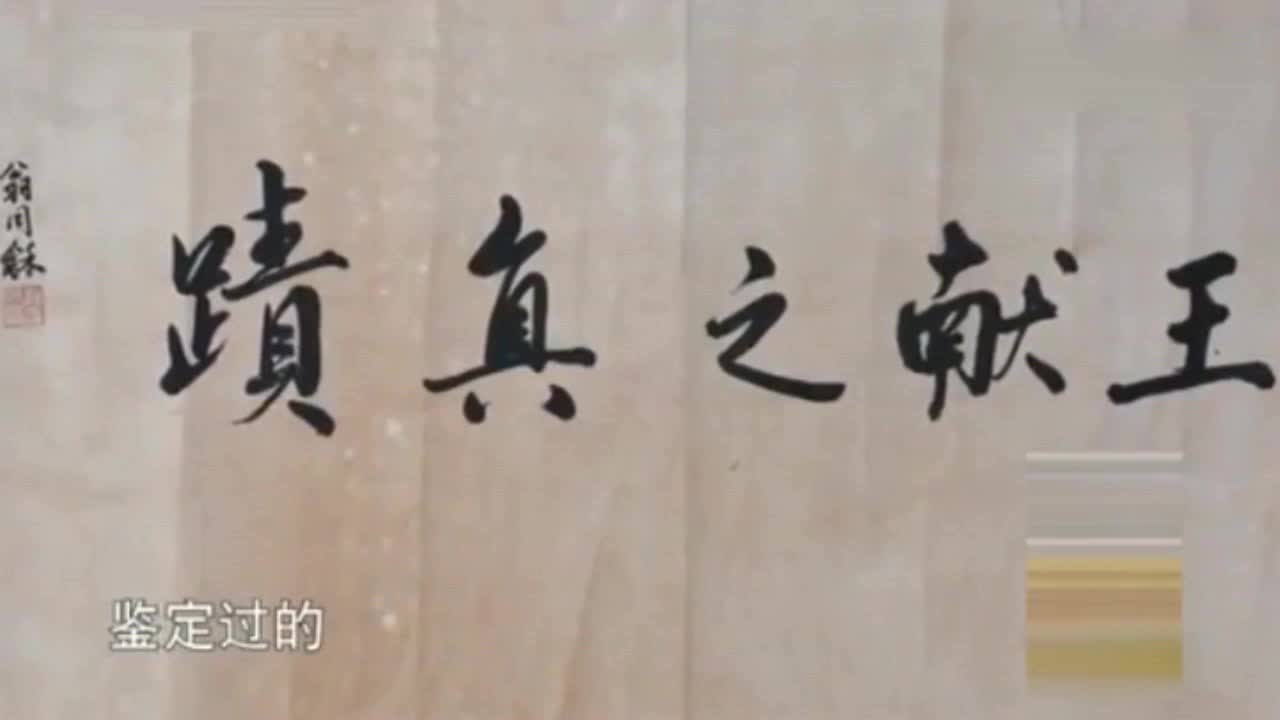 王献之真蹟
翁同龢
鉴定过的